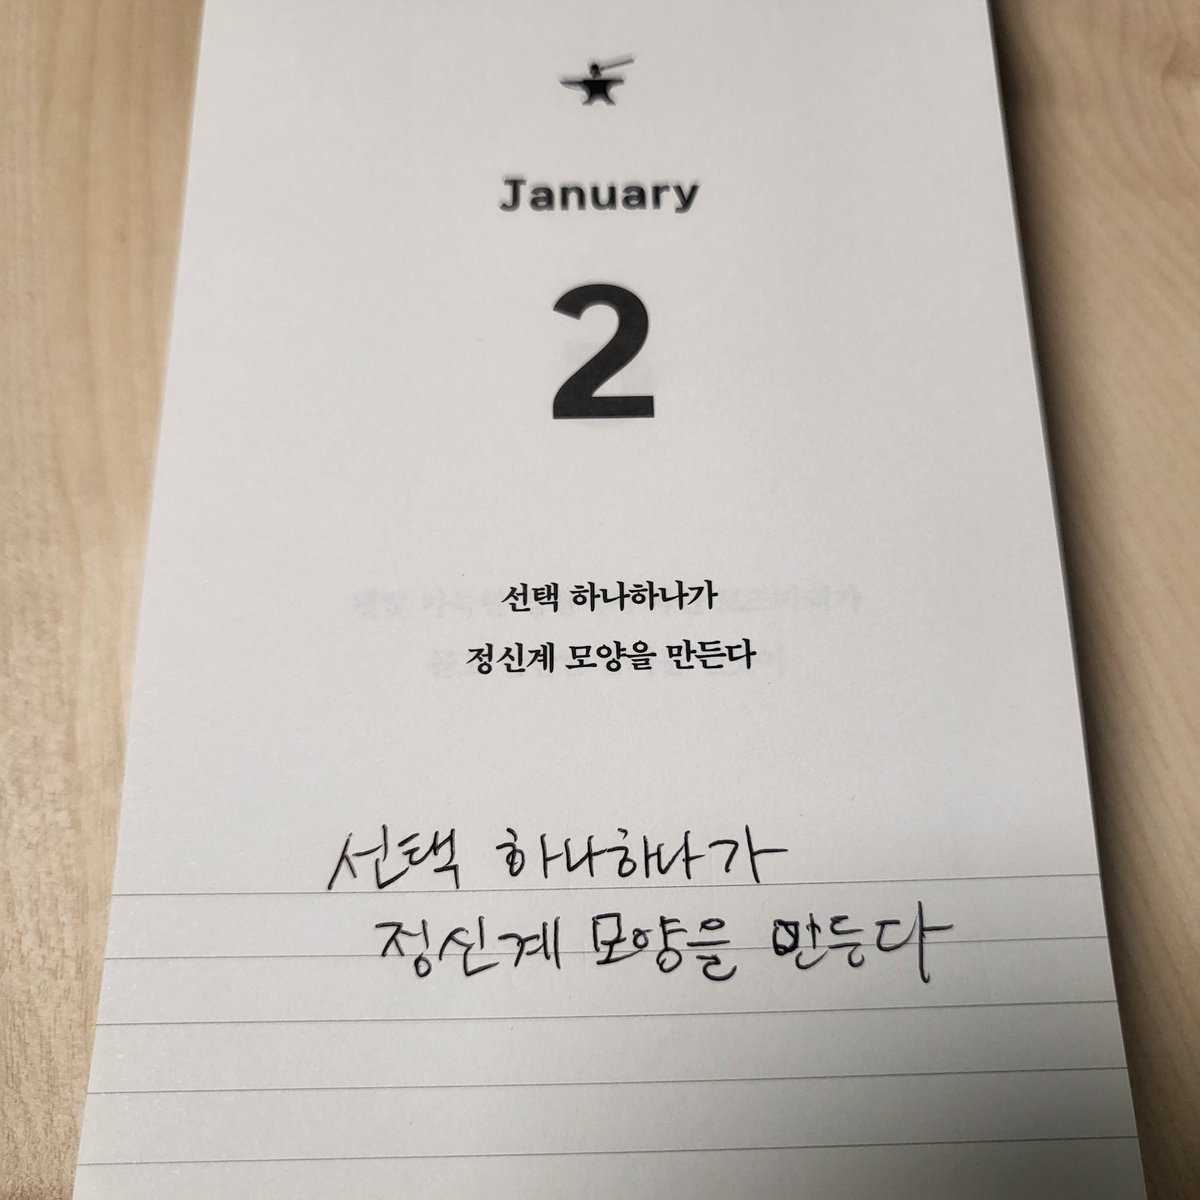 January
2
선택 하나하나가
정신계 모양을 만든다
선택 하나하나가
정신계 모양을 만든다